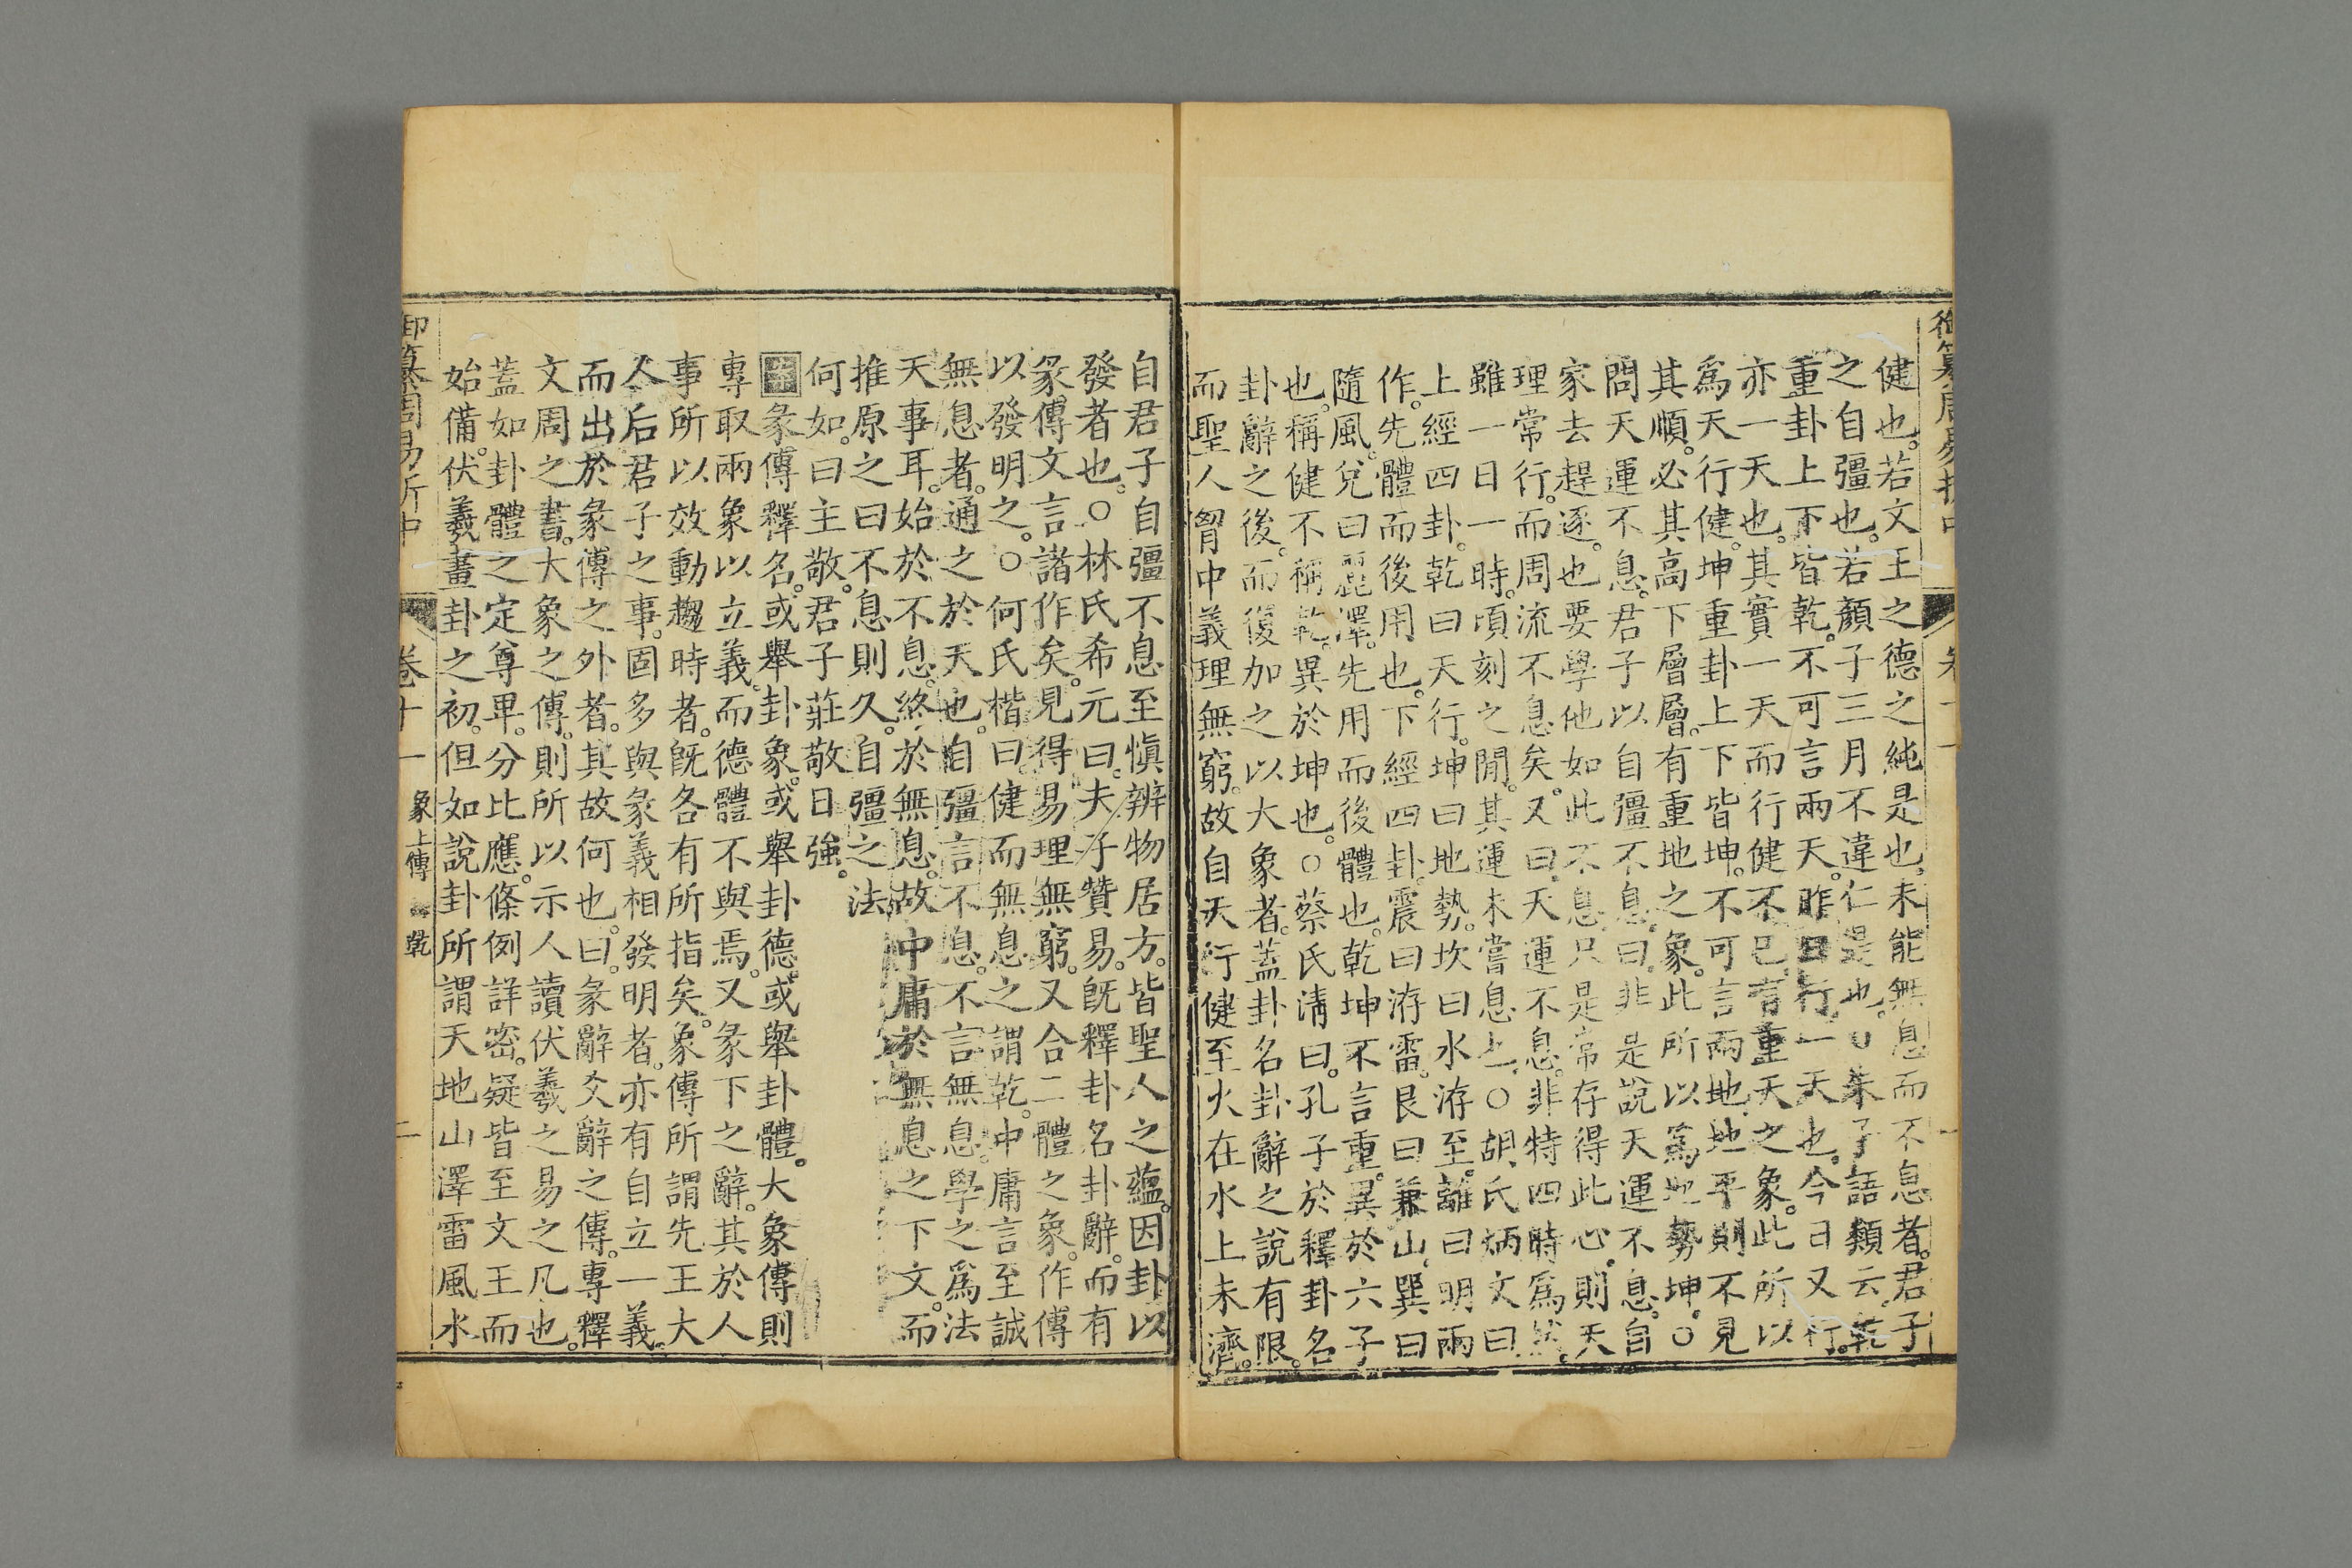 御纂周易折中
卷十一
健也。若文王之德之純是也。未能無息而不息者。君子
之自彊也。若顏子三月不違仁是也。○朱子語類云。乾
重卦上下皆乾。不可言兩天。昨日行。一天也。今日又行。
亦一天也。其實一天而行健不已。有重天之象。此所以
為天行健。坤重卦上下皆坤。不可言兩地。地平則不見
其順。必其高下層層。有重地之象。此所以為地勢坤。○
問天運不息。君子以自彊不息。曰。非是說天運不息。自
家去趕逐。也要學他如此不息。只是常存得此心。則天
理常行。而周流不息矣。又曰。天運不息。非特四時爲然。
雖一日一時。頃刻之閒。其運未嘗息也。○胡氏炳文曰。
上經四卦。乾曰天行。坤曰地勢。坎曰水洊至。離曰明兩
作。先體而後用也。下經四卦。震曰洊雷。艮曰兼山。巽曰
隨風。兌曰麗澤。先用而後體也。乾坤不言重。異於六子
也。稱健不稱乾。異於坤也。○蔡氏淸曰。孔子於釋卦名
卦辭之後。而復加之以大象者。蓋卦名卦辭之說有限。
而聖人胷中義理無窮。故自天行健至火在水上未濟。
自君子自彊不息至愼辨物居方。皆聖人之蘊。因卦以
發者也。○林氏希元曰。夫子贊易。旣釋卦名卦辭。而有
彖傳文言諸作矣。見得易理無窮。又合二體之象。作傳
以發明之。○何氏楷曰。健而無息之謂乾。中庸言至誠
無息者。通之於天也。自彊言不息。不言無息。學之爲法
天事耳。始於不息。終於無息。故中庸於無息之下文。而
推原之曰不息則久。自彊之法
何如。曰主敬。君子莊敬日強。
彖傳釋名。或舉卦象。或舉卦德。或舉卦體。大象傳則
專取兩象以立義。而德體不與焉。又彖下之辭。其於人
事所以效動趨時者。旣各有所指矣。象傳所謂先王大
人后君子之事。固多與彖義相發明者。亦有自立一義。
而出於彖傳之外者。其故何也。曰。彖辭爻辭之傳。專釋
文周之書。大象之傳。則所以示人讀伏羲之易之凡也。
蓋如卦體之定尊卑。分比應。條例詳密。疑皆至文王而
始備。伏羲畫卦之初。但如說卦所謂天地山澤雷風水
御纂周易折中
卷十一
象上傳
乾
二